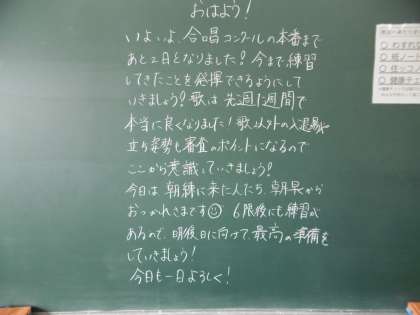 おはよう!
いよいよ、合唱コンクールの本番まで
あと2日となりました!今まで練習
してきたことを発揮できるようにして
いきましょう?歌は先週1週間で
本当に良くなりました!歌以外の入退場や
立ち姿勢も審査のポイントになるので
ここから意識していきましょう!
今日は朝練に来た人たち、朝早から
おつかれさまです☺ 6限後にも練習が
あるので、明後日に向けて、最高の準備を
していきましょう!
今日も一日よろしく!